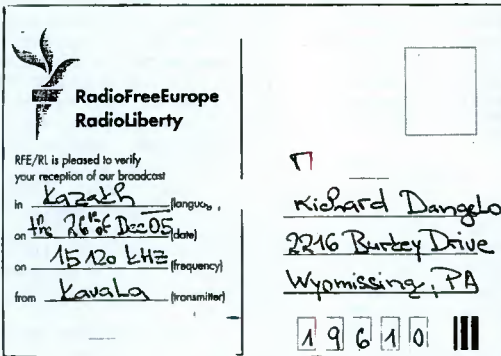 RadioFreeEurope
RadioLiberty
RFE/RL is pleased to verify
your reception of our broadcast
in Kazakh (language)
on the 26th of Dec 05 (date)
on 15120 kHz (frequency)
from Kavala (transmitter)
Richard Dangelo
2216 Burkey Drive
Wyomissing, PA
19610